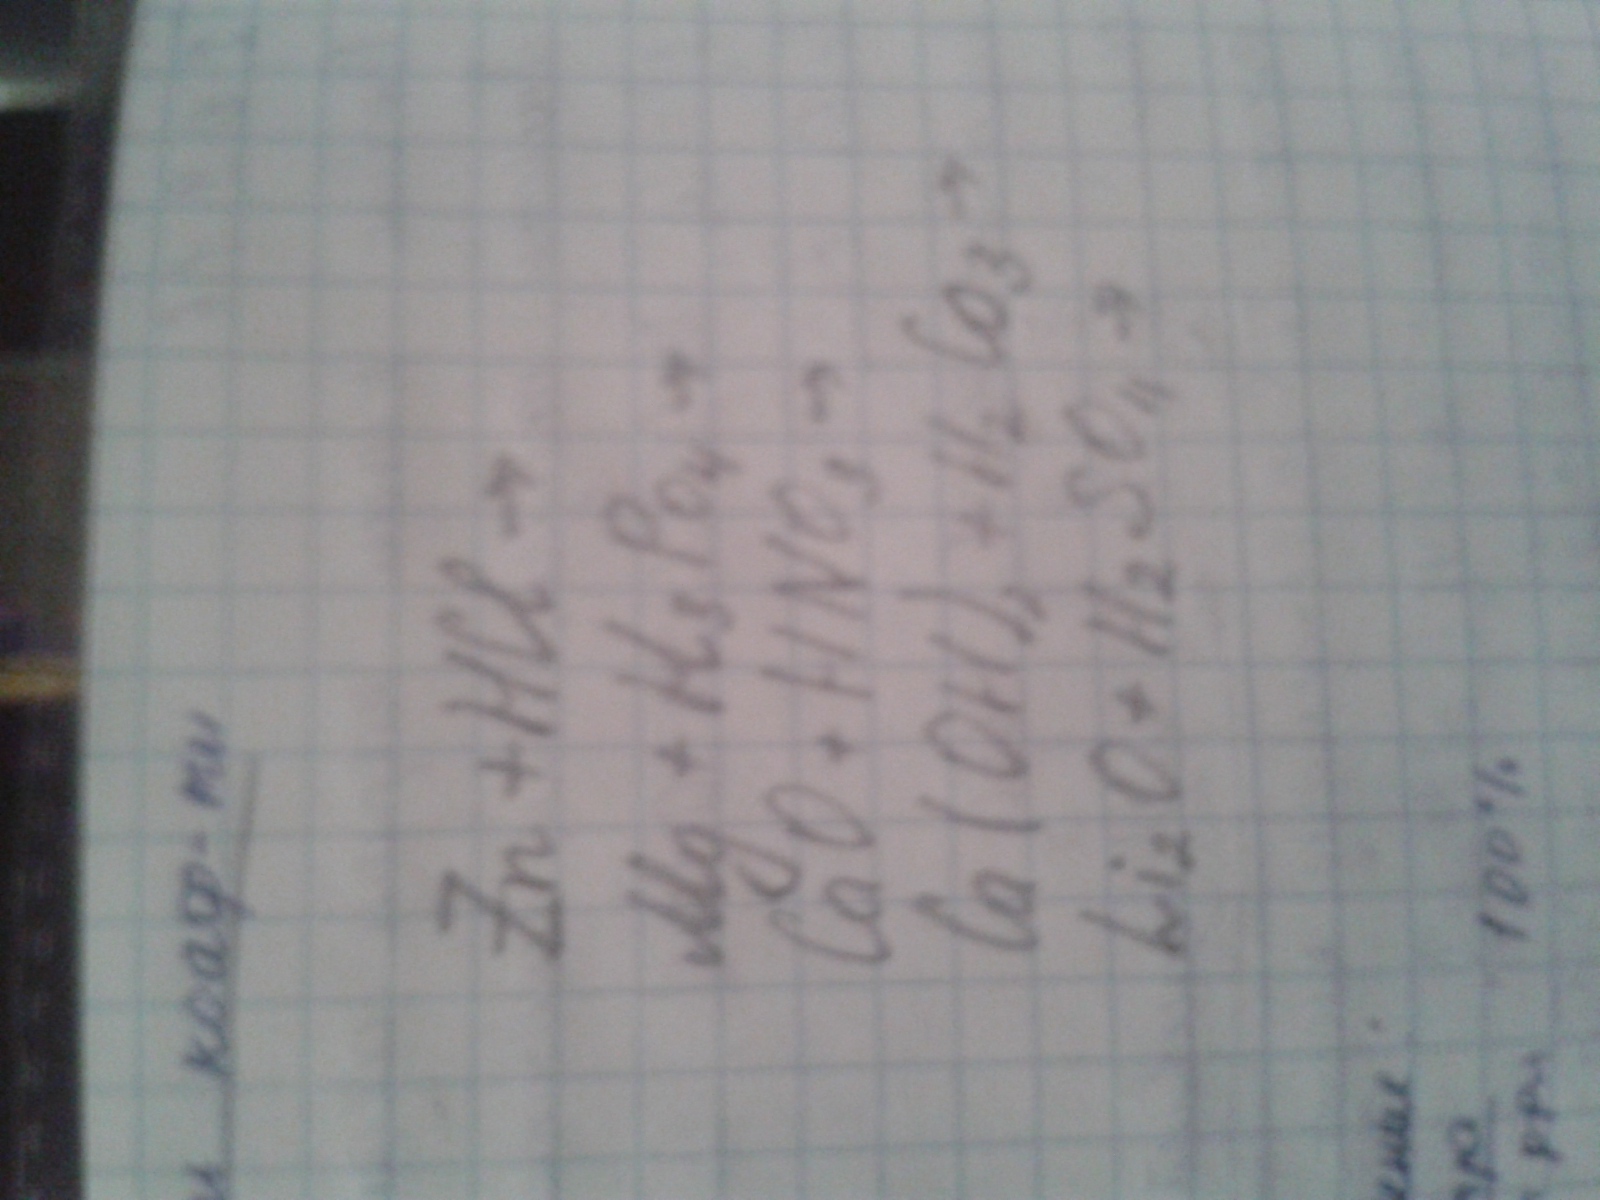 и коэф-ты
Zn + HCl →
Mg + H3PO4 →
CaO + HNO3 →
Ca(OH)2 + H2CO3 →
Li2O + H2SO4 →
100%
при